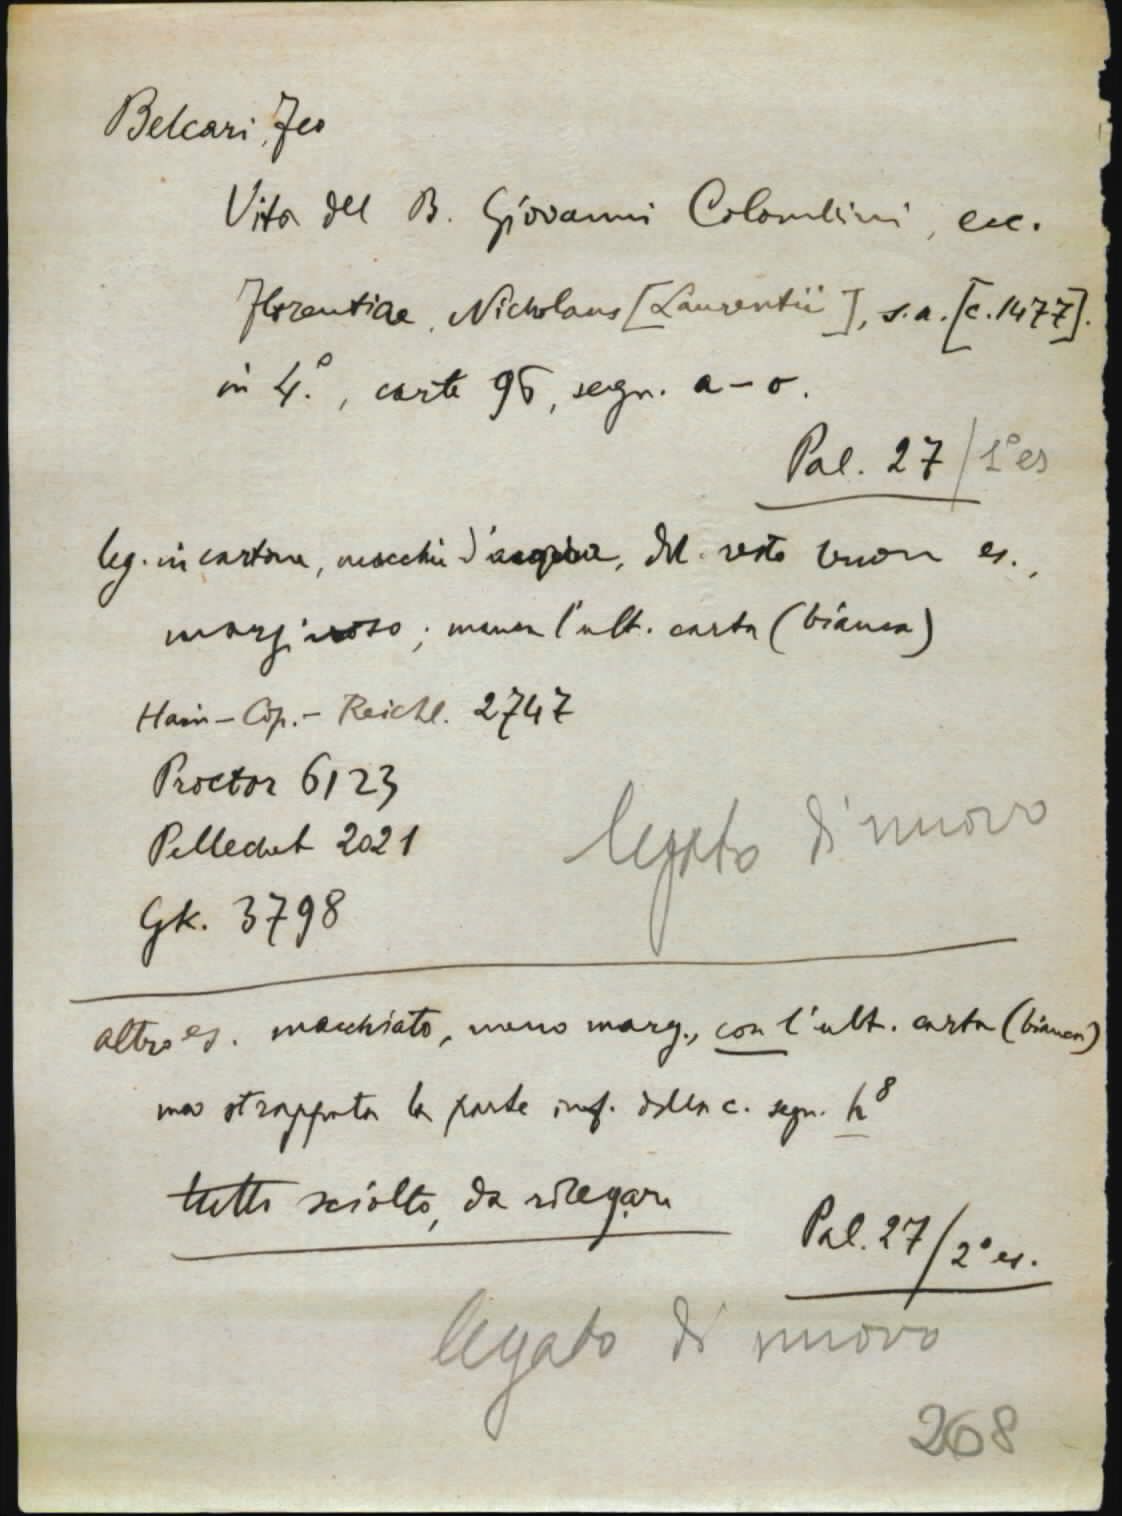 Belcari, Feo
Vita del B. Giovanni Colombini, ecc.
Florentiae, Nicholaus [Laurentii], s.a. [c. 1477].
in 4.º, carte 96, segn. a – o.
Pal. 27 / 1º es
leg. in cartone, macchie d'acqua, del resto buon es.,
marginoso; manca l'ult. carta (bianca)
Hain – Cop. – Reichl. 2747
Proctor 6123
Pellechet 2021
legato di nuovo
GK. 3798
altro es. macchiato, meno marg., con l'ult. carta (bianca)
ma strappata la parte inf. della c. segn. h⁸
tutto sciolto, da rilegare
Pal. 27 / 2º es.
legato di nuovo
268